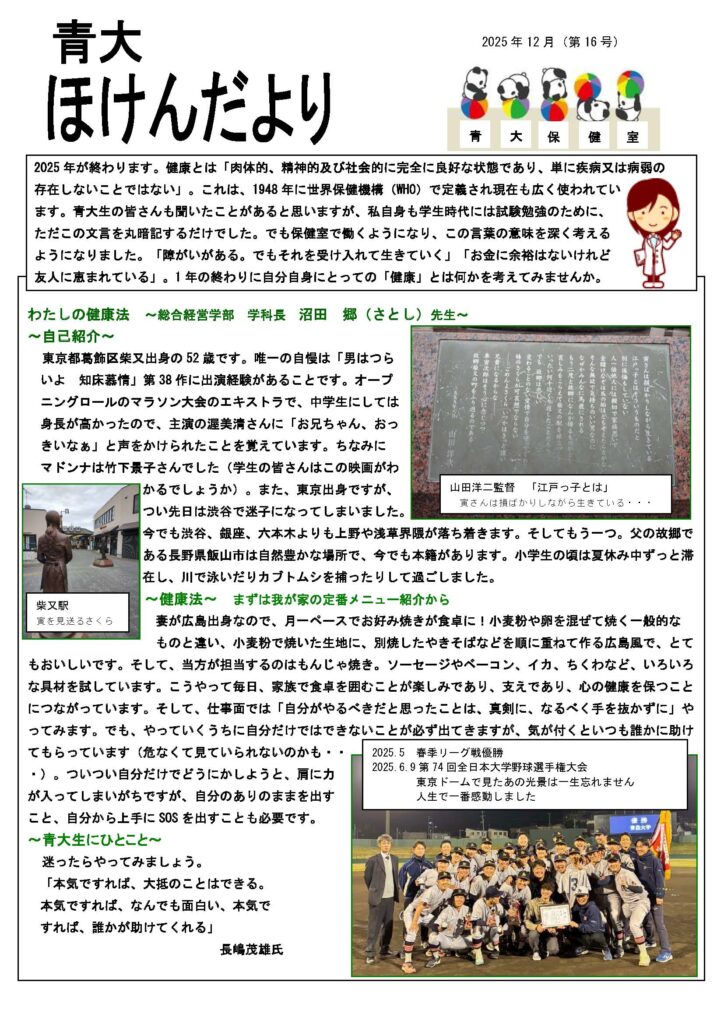 青大
ほけんだより
2025年12月（第16号）
青 大 保 健 室
2025年が終わります。健康とは「肉体的、精神的及び社会的に完全に良好な状態であり、単に疾病又は病弱の
存在しないことではない」。これは、1948年に世界保健機構（WHO）で定義され現在も広く使われてい
ます。青大生の皆さんも聞いたことがあると思いますが、私自身も学生時代には試験勉強のために、
ただこの文言を丸暗記するだけでした。でも保健室で働くようになり、この言葉の意味を深く考える
ようになりました。「障がいがある。でもそれを受け入れて生きていく」「お金に余裕はないけれど
友人に恵まれている」。1年の終わりに自分自身にとっての「健康」とは何かを考えてみませんか。
わたしの健康法 ～総合経営学部 学科長 沼田 郷（さとし）先生～
～自己紹介～
東京都葛飾区柴又出身の52歳です。唯一の自慢は「男はつら
いよ 知床慕情」第38作に出演経験があることです。オープ
ニングロールのマラソン大会のエキストラで、中学生にしては
身長が高かったので、主演の渥美清さんに「お兄ちゃん、おっ
きいなぁ」と声をかけられたことを覚えています。ちなみに
マドンナは竹下景子さんでした（学生の皆さんはこの映画がわ
かるでしょうか）。また、東京出身ですが、
つい先日は渋谷で迷子になってしまいました。
今でも渋谷、銀座、六本木よりも上野や浅草界隈が落ち着きます。そしてもう一つ。父の故郷で
ある長野県飯山市は自然豊かな場所で、今でも本籍があります。小学生の頃は夏休み中ずっと滞
在し、川で泳いだりカブトムシを捕ったりして過ごしました。
山田洋次
山田洋二監督 「江戸っ子とは」
寅さんは損ばかりしながら生きている・・・
柴又駅
寅を見送るさくら
～健康法～ まずは我が家の定番メニュー紹介から
妻が広島出身なので、月一ペースでお好み焼きが食卓に！小麦粉や卵を混ぜて焼く一般的な
ものと違い、小麦粉で焼いた生地に、別焼したやきそばなどを順に重ねて作る広島風で、とて
もおいしいです。そして、当方が担当するのはもんじゃ焼き。ソーセージやベーコン、イカ、ちくわなど、いろいろ
な具材を試しています。こうやって毎日、家族で食卓を囲むことが楽しみであり、支えであり、心の健康を保つこと
につながっています。そして、仕事面では「自分がやるべきだと思ったことは、真剣に、なるべく手を抜かずに」や
ってみます。でも、やっていくうちに自分だけではできないことが必ず出てきますが、気が付くといつも誰かに助け
てもらっています（危なくて見ていられないのかも・・
・）。ついつい自分だけでどうにかしようと、肩に力
が入ってしまいがちですが、自分のありのままを出す
こと、自分から上手にSOSを出すことも必要です。
2025.5 春季リーグ戦優勝
2025.6.9 第74回全日本大学野球選手権大会
東京ドームで見たあの光景は一生忘れません
人生で一番感動しました
優勝
青森大学
～青大生にひとこと～
迷ったらやってみましょう。
「本気ですれば、大抵のことはできる。
本気ですれば、なんでも面白い、本気で
すれば、誰かが助けてくれる」
長嶋茂雄氏